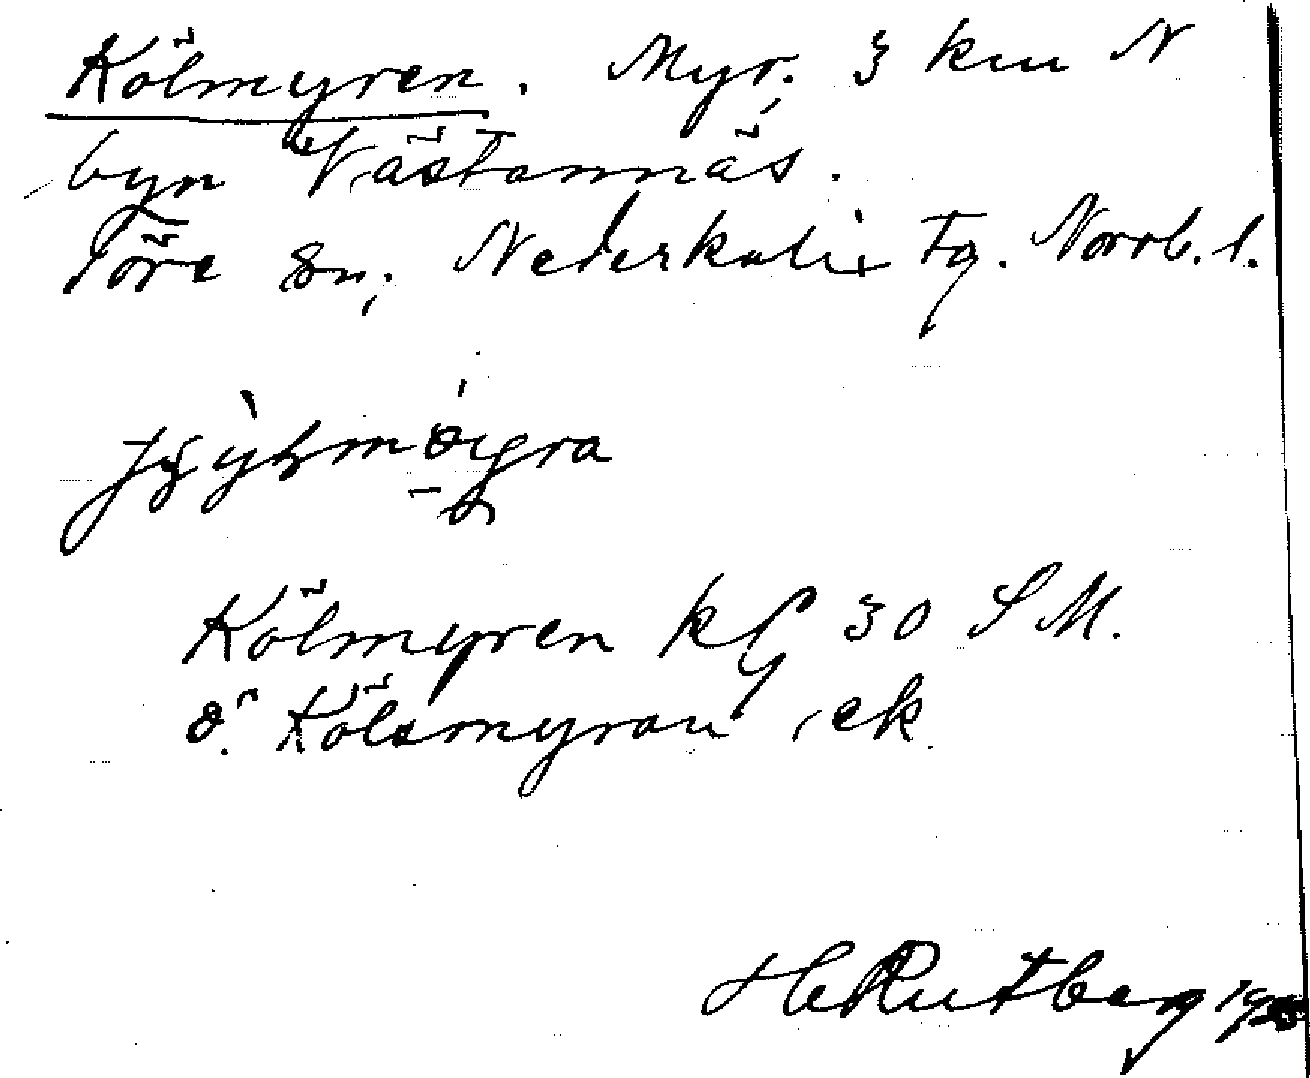 Kölmyren. Myr. 3 km N
byn Västannäs.
Töre sn; Nederkalix tg. Norrb. l.
Kölmyren kf 30 SM.
ö. Kölsmyran, ek
H Rutberg